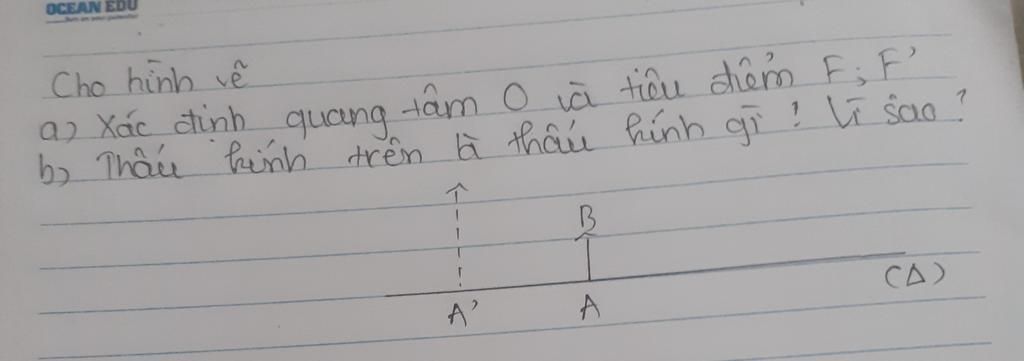 OCEAN EDU
Cho hình vẽ
a) Xác định quang tâm O và tiêu điểm F; F'
b) Thấu kính trên là thấu kính gì? Vì sao?
B
A' A (Δ)